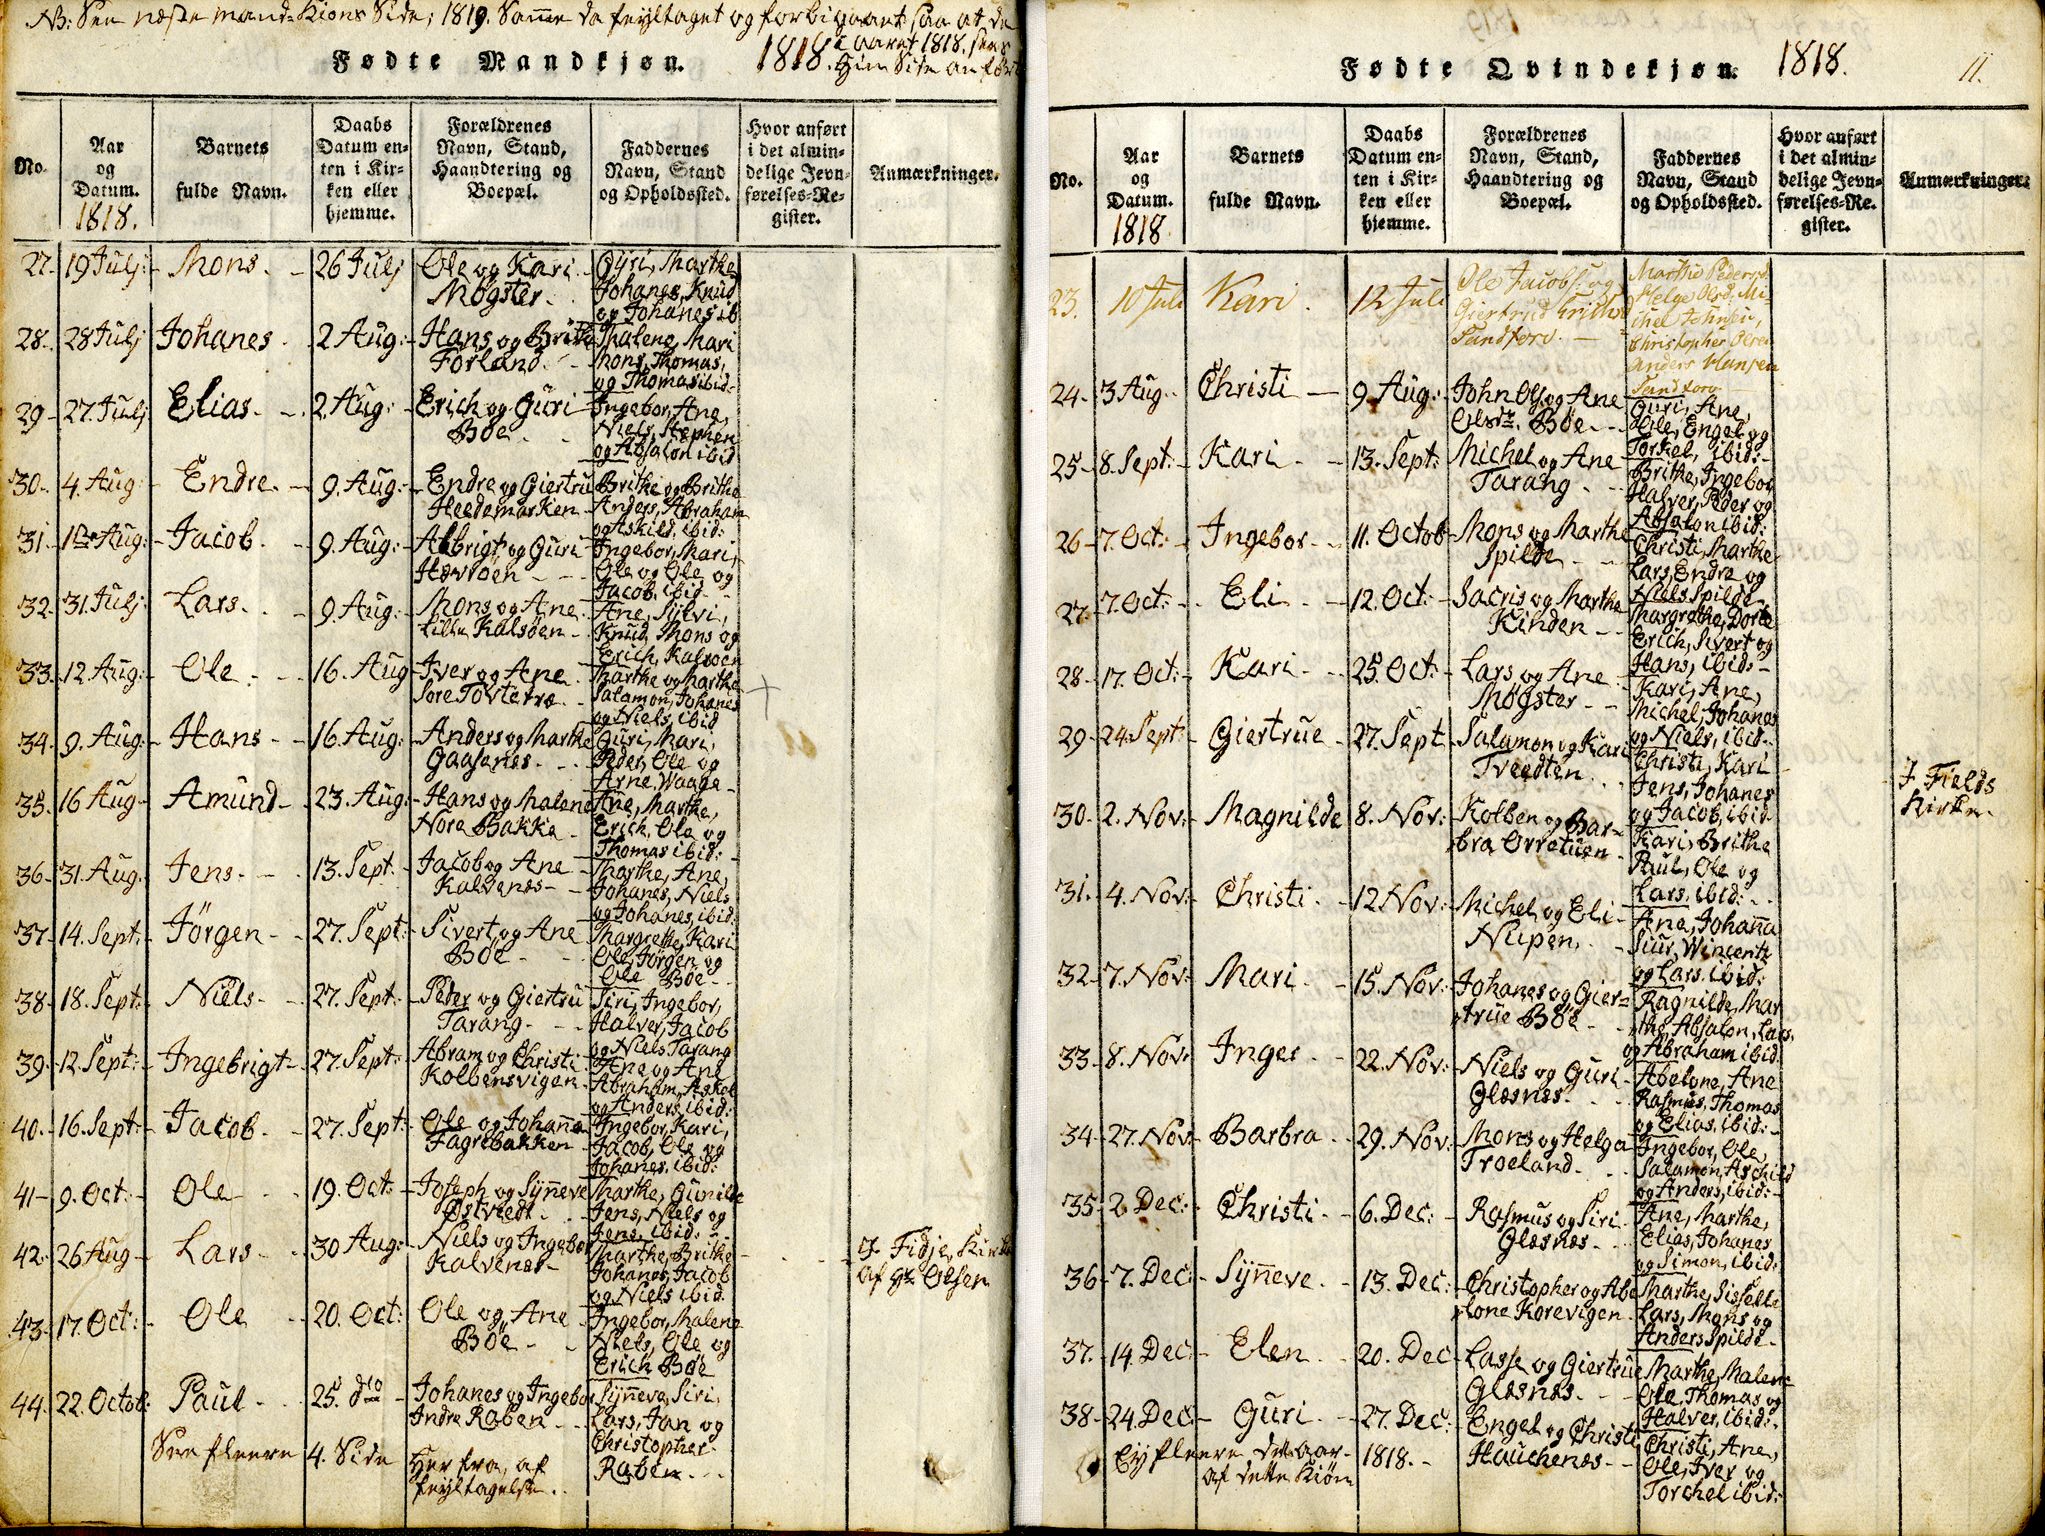 NB: See neste mand-Kiøns Side, 1819. Same da feyltaget og forbigaaet, saa at de
i Aaret 1818. sees
Fødte Mandkjøn. 1818. Hin Side anført
No.
Aar og Datum. 1818.
Barnets fulde Navn.
Daabs Datum enten i Kirken eller hjemme.
Forældrenes Navn, Stand, Haandtering og Boepæl.
Faddernes Navn, Stand og Opholdssted.
Hvor anført i det almindelige Jevnførelses-Register.
Anmærkninger.
27. 19 Julj Mons. 26 Julj Ole og Kari Møgster. Gyri, Marthe Johanes, Knud og Johanes ib
28. 28 Julj Johanes 2 Aug: Hans og Brithe Forland Malene, Mari Mons, Thomas, og Thomas ibid
29 27. Julj Elias. 2. Aug: Erich og Guri Böe Ingebor, Ane, Niels, Stephen og Absalon ibid
30. 4. Aug: Endre. 9. Aug: Endre og Giertru Heedemarken Brithe og Brithe Anders, Abraham og Askild, ibid:
31 1de Aug: Jacob. 9. Aug: Albrigt og Guri Hevröen Ingebor, Mari, Ole og Ole og Jacob ibid
32. 31. Julj Lars. 9 Aug: Mons og Ane Lille Kalsöen Ane, Sylvi, Knud, Mons og Erich, Kalsöen
33. 12 Aug: Ole 16. Aug Iver og Ane Sore Tovterø Marthe og Marthe Salamon, Johanes og Niels, ibid
34. 9. Aug: Hans 16 Aug: Anders og Marthe Gaasenes Guri, Mari, Peder, Ole og Arne Waage
35. 16 Aug Amund 23. Aug: Hans og Malene Nore Bakke Ane, Marthe, Erich, Ole og Thomas ibid:
36. 31. Aug. Jens. 13. Sept. Jacob og Ane Kalvenes Marthe, Ane, Johanes, Niels og Johanes, ibid:
37. 14. Sept. Jörgen 27. Sept: Sivert og Ane Böe Margrethe, Kari Ole, Jörgen og Ole Böe
38. 18. Sept: Niels 27. Sept: Peder og Giertru Tarang. Siri, Ingebor, Halver, Jacob og Niels Tarang
39. 12. Sept: Ingebrigt 27. Sept: Abram og Christi Kolbensvigen Ane og Ane Abraham, Askel og Anders ibid:
40. 16. Sept: Jacob 27. Sept: Ole og Johanne Fagrebakken Ingebor, Kari, Jacob, Ole og Johanes, ibid:
41 9. Oct: Ole 19. Oct: Joseph og Synneve Østvedt Marthe, Gunilde Jens, Niels og Jens, ibid:
42. 26 Aug Lars 30 Aug: Niels og Ingebor Kalvenes Marthe, Brithe Johanes, Jacob og Niels ibid. I Fidje, Kirke af Hr Olsen
43. 17. Oct: Ole 20. Oct: Ole og Ane Böe Ingebor, Malene Niels, Ole og Erich Böe
44. 22. Octob: Paul 25. dto Johanes og Ingebor Indre Raben Synneve, Siri, Lars, Jan og Christopher Raben
See fleere 4. Side Her fra, af feyltagelse.
Fødte Qvindekjøn. 1818. 11.
No.
Aar og Datum. 1818
Barnets fulde Navn.
Daabs Datum enten i Kirken eller hjemme.
Forældrenes Navn, Stand, Haandtering og Boepæl.
Faddernes Navn, Stand og Opholdssted.
Hvor anført i det almindelige Jevnførelses-Re. gister.
Anmærkninger.
23. 10 Juli Kari. 12 Juli Ole Jacobs: og Giertrud Sandtorv. Marthe Peders d. Helge Olsd: Michel Johnsen, Christopher Olsen Anders Hansen Sandtorv
24. 3 Aug. Christi 9 Aug: John Ols: og Ane Olsdtr. Böe Guri, Ane, Ole, Engel og Torkel, ibid:
25 8. Sept: Kari 13. Sept: Michel og Ane Tarang Brithe, Ingebor Halver, Peder og Absalon ibid:
26 7. Oct: Ingebor 11. Octob Mons og Marthe Spilde Christi, Marthe Lars, Endre og Niels Spilde
27. 7. Oct: Eli 12. Oct: Sacris og Marthe Kinden Margrethe, Dorte Erich, Sivert og Hans, ibid:
28 17. Oct: Kari 25. Oct: Lars og Ane Møgster Kari, Ane, Michel, Johanes og Niels, ibid:
29 24. Sept: Giertrue 27. Sept Salamon og Kari Tveedten Christi, Kari Jens, Johanes og Jacob, ibid I Fields Kirke.
30. 2. Nov: Magnilde 8. Nov: Kolben og Barbra Orretuen Kari, Brithe Paul, Ole og Lars, ibid:
31. 4. Nov: Christi 12 Nov: Michel og Eli Nupen Ane, Johanna Siur, Wincentz og Lars, ibid:
32 7. Nov: Mari 15. Nov: Johanes og Giertrue Böe Ragnilde, Marthe, Absalon, Lars, og Abraham ibid
33 8. Nov: Inger 22. Nov: Niels og Guri Glesnes Abelone, Ane Rasmus, Thomas og Elias, ibid:
34 27. Nov Barbra 29. Nov: Mons og Helga Troeland Ingebor, Ole, Salamon, Aschild og Anders, ibid:
35 2. Dec: Christi 6. Dec: Rasmus og Siri Glesnes Ane, Marthe, Elias, Johanes og Simon, ibid:
36 7. Dec: Synneve 13. Dec: Christopher og Abelone Korevigen Marthe, Sisselle Lars, Mons og Anders Spilde
37. 14. Dec: Elen 20. Dec Lasse og Giertrue Glesnes Marthe, Malene Ole, Thomas og Halver, ibid:
38 24. Dec Guri 27. Dec: Engel og Christi Hauchenes Christi, Ane, Ole, Iver og Torchel ibid:
Ey fleere dette aar 1818.
af dette Kiøn